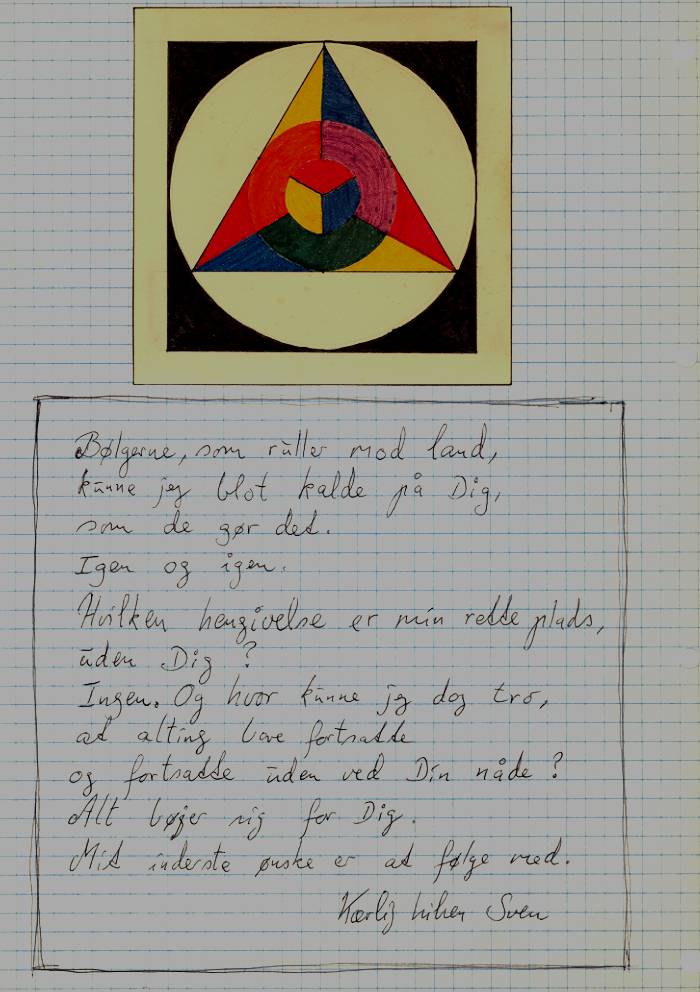 Bølgerne, som ruller mod land,
kunne jeg blot kalde på Dig,
som de gør det.
Igen og igen.
Hvilken hengivelse er min rette plads,
uden Dig ?
Ingen. Og hvor kunne jeg dog tro,
at alting bare fortsatte
og fortsatte uden ved Din nåde ?
Alt bøjer sig for Dig.
Mit inderste ønske er at følge med.
Kærlig hilsen Sven